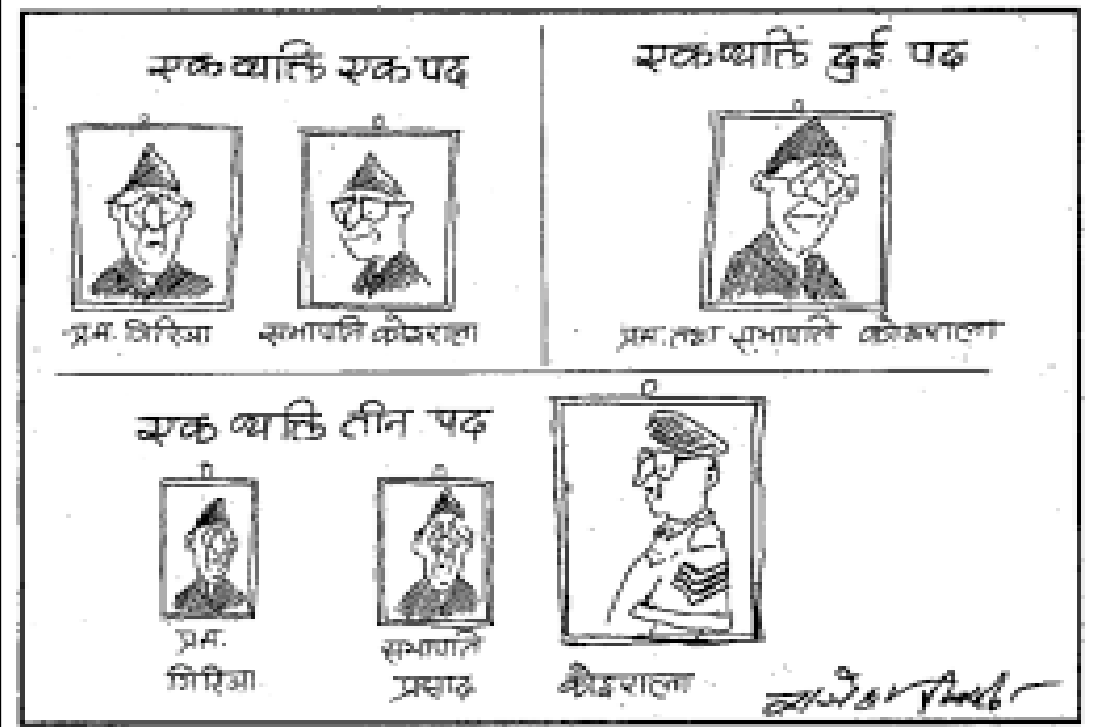 एक व्यक्ति एक पद
प्रम. गिरिजा
सभापति कोइराला
एक व्यक्ति दुई पद
प्रम. तथा सभापति कोइराला
एक व्यक्ति तीन पद
प्रम.
गिरिजा
सभापति
प्रसाद
कोइराला